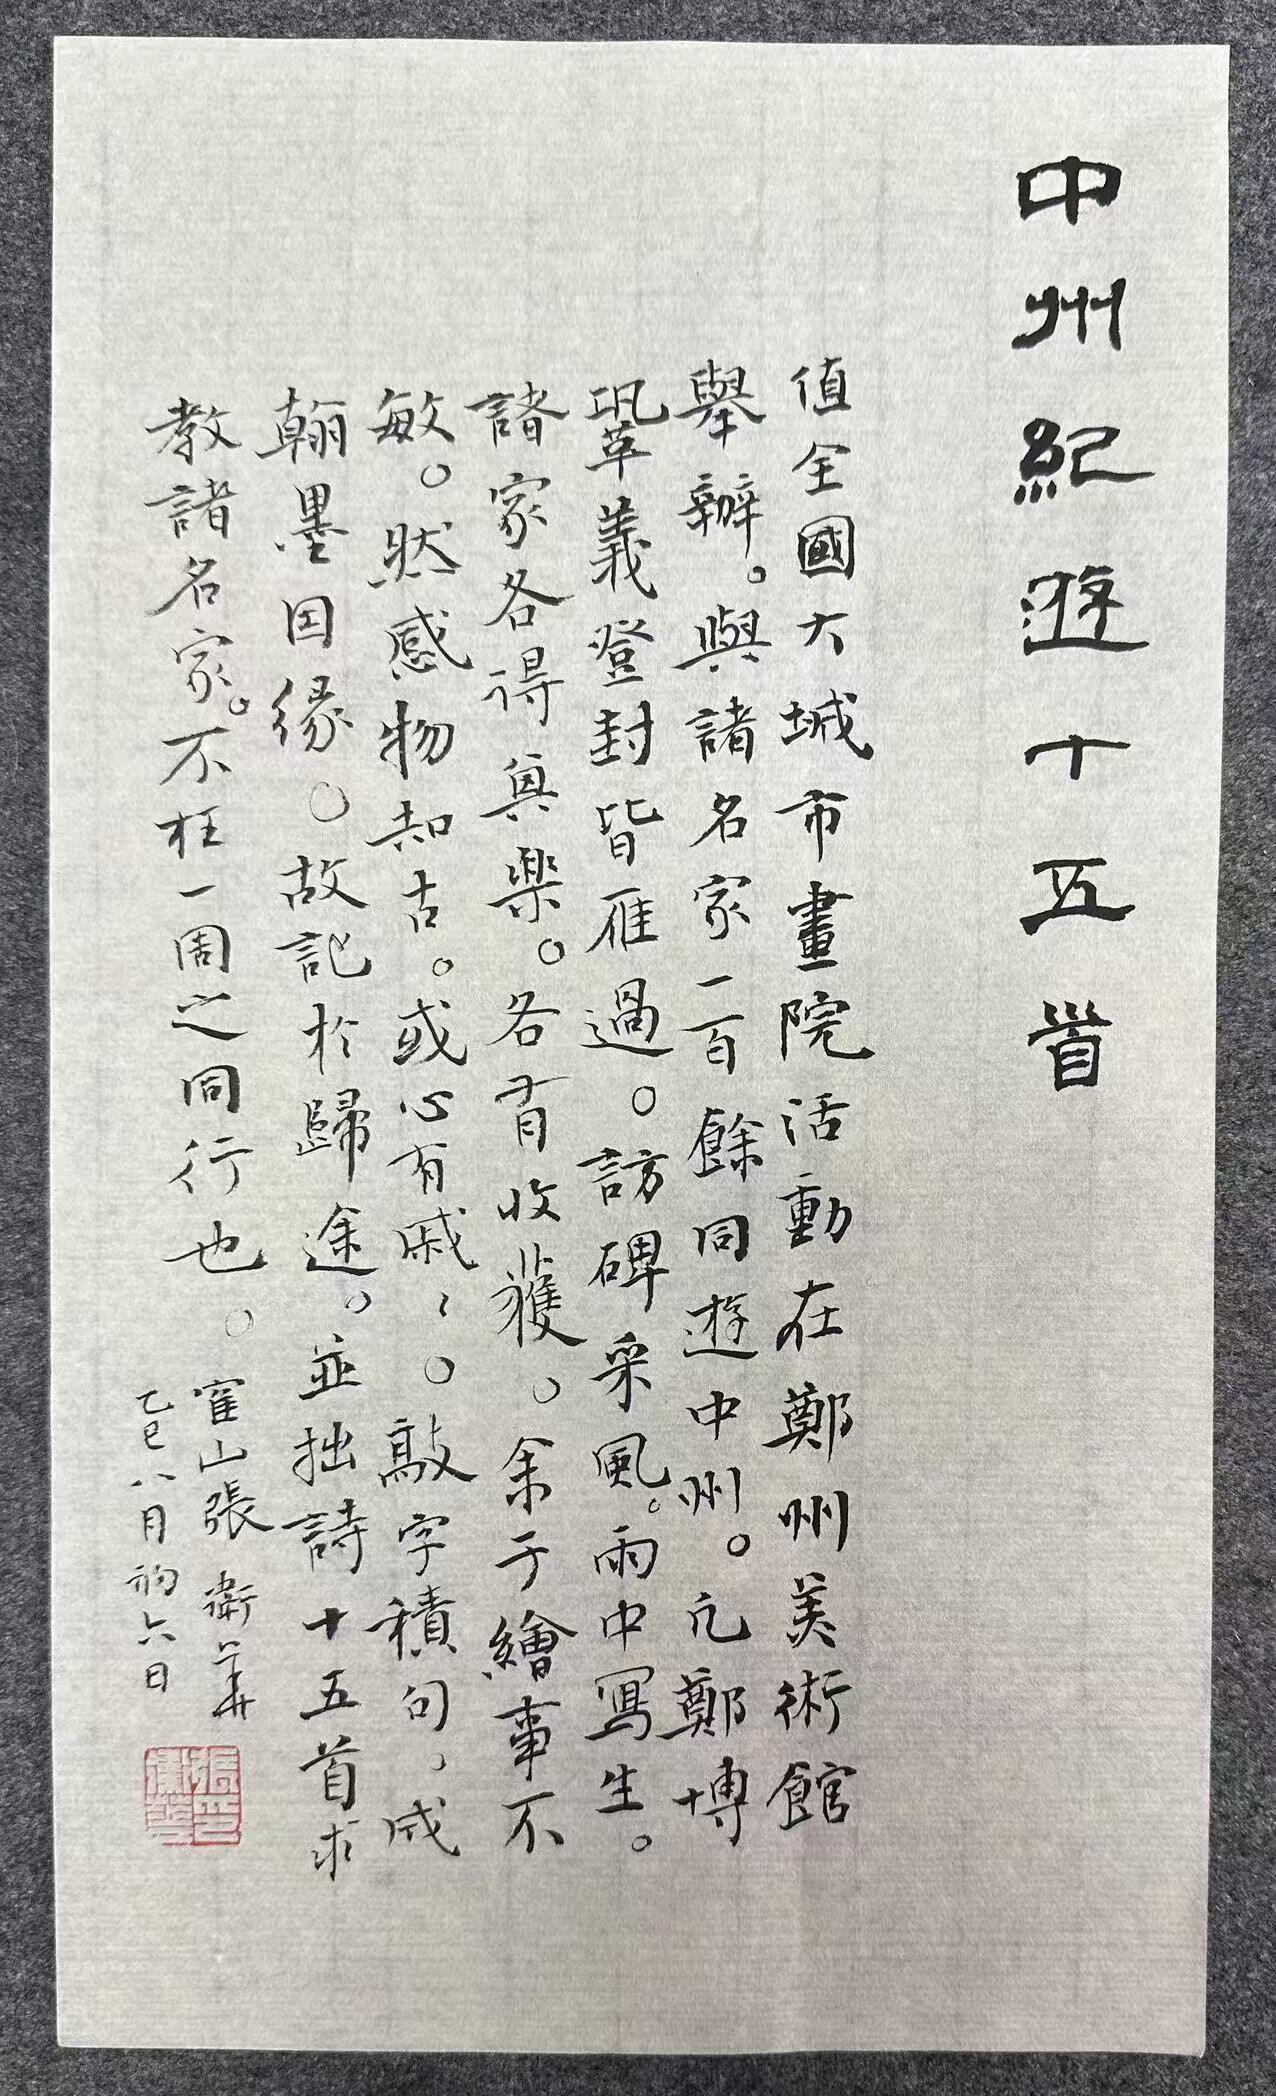 中州紀遊十五首
值全國大城市畫院活動在鄭州美術館
舉辦。與諸名家一百餘同遊中州。凡鄭博
鞏義登封皆雁過。訪碑采風。雨中寫生。
諸家各得真樂。各有收獲。余于繪事不
敏。然感物知古。或心有戚戚。敲字積句，成
翰墨因緣。故記於歸途。並拙詩十五首求
教諸名家。不枉一周之同行也。
山張衛華
乙巳八月初六日
張衛華